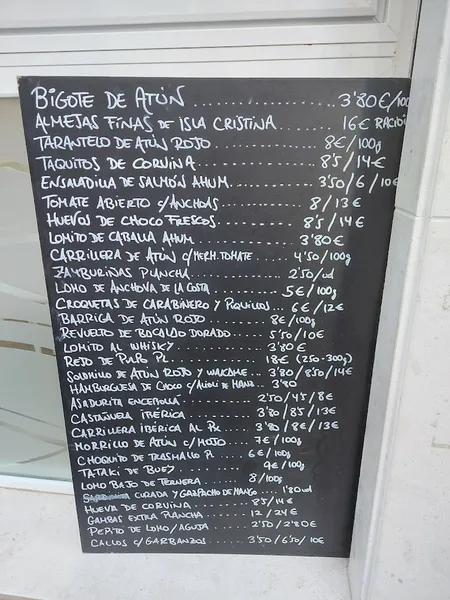 BIGOTE DE ATÚN .................. 3'80€/100
ALMEJAS FINAS DE ISLA CRISTINA ..... 16€ RACIÓ
TARANTELO DE ATÚN ROJO ............ 8€/100g
TAQUITOS DE CORVINA .............. 8'5/14€
ENSALADILLA DE SALMÓN AHUM......... 3'50/6/10€
TOMATE ABIERTO C/ANCHOAS ......... 8/13€
HUEVOS DE CHOCO FRESCOS .......... 8'5/14€
LOMITO DE CABALLA AHUM .......... 3'80€
CARRILLERA DE ATÚN C/MERM. TOMATE .... 4'50/100g
ZAMBURIÑAS PLANCHA ............. 2'50/ud
LOMO DE ANCHOVA DE LA COSTA ....... 5€/100g
CROQUETAS DE CARABINERO Y PIQUILLOS... 6€/12€
BARRIGA DE ATÚN ROJO ........... 8€/100g
REVUELTO DE BACALAO DORADO........ 5'50/10€
LOMITO AL WHISKY ............. 3'80€
REJO DE PULPO PL............. 18€ (250-300g)
SOLOMILLO DE ATÚN ROJO Y WAKAME... 3'80/8'50/14€
HAMBURGUESA DE CHOCO C/ALIOLI DE MANZ.. 3'80
ASADURITA ENCEBOLLÁ .......... 2'50/4'5/8€
CASTAÑUELA IBÉRICA .......... 3'80/8'5/13€
CARRILLERA IBÉRICA AL PX ...... 3'80/8€/13€
MORRILLO DE ATÚN C/MOJO .... 7€/100g
CHOQUITO DE TRASMALLO P. .... 6€/100g
TATAKI DE BUEY ......... 9€/100g
LOMO BAJO DE TERNERA ..... 8/100g
CURADA Y GAZPACHO DE MANGO ... 1'80ud
HUEVA DE CORVINA ....... 8'5/14€
GAMBAS EXTRA PLANCHA ....... 12/24€
PEPITO DE LOMO/AGUJA ...... 2'50/2'80€
CALLOS C/GARBANZOS ...... 3'50/6'50/10€